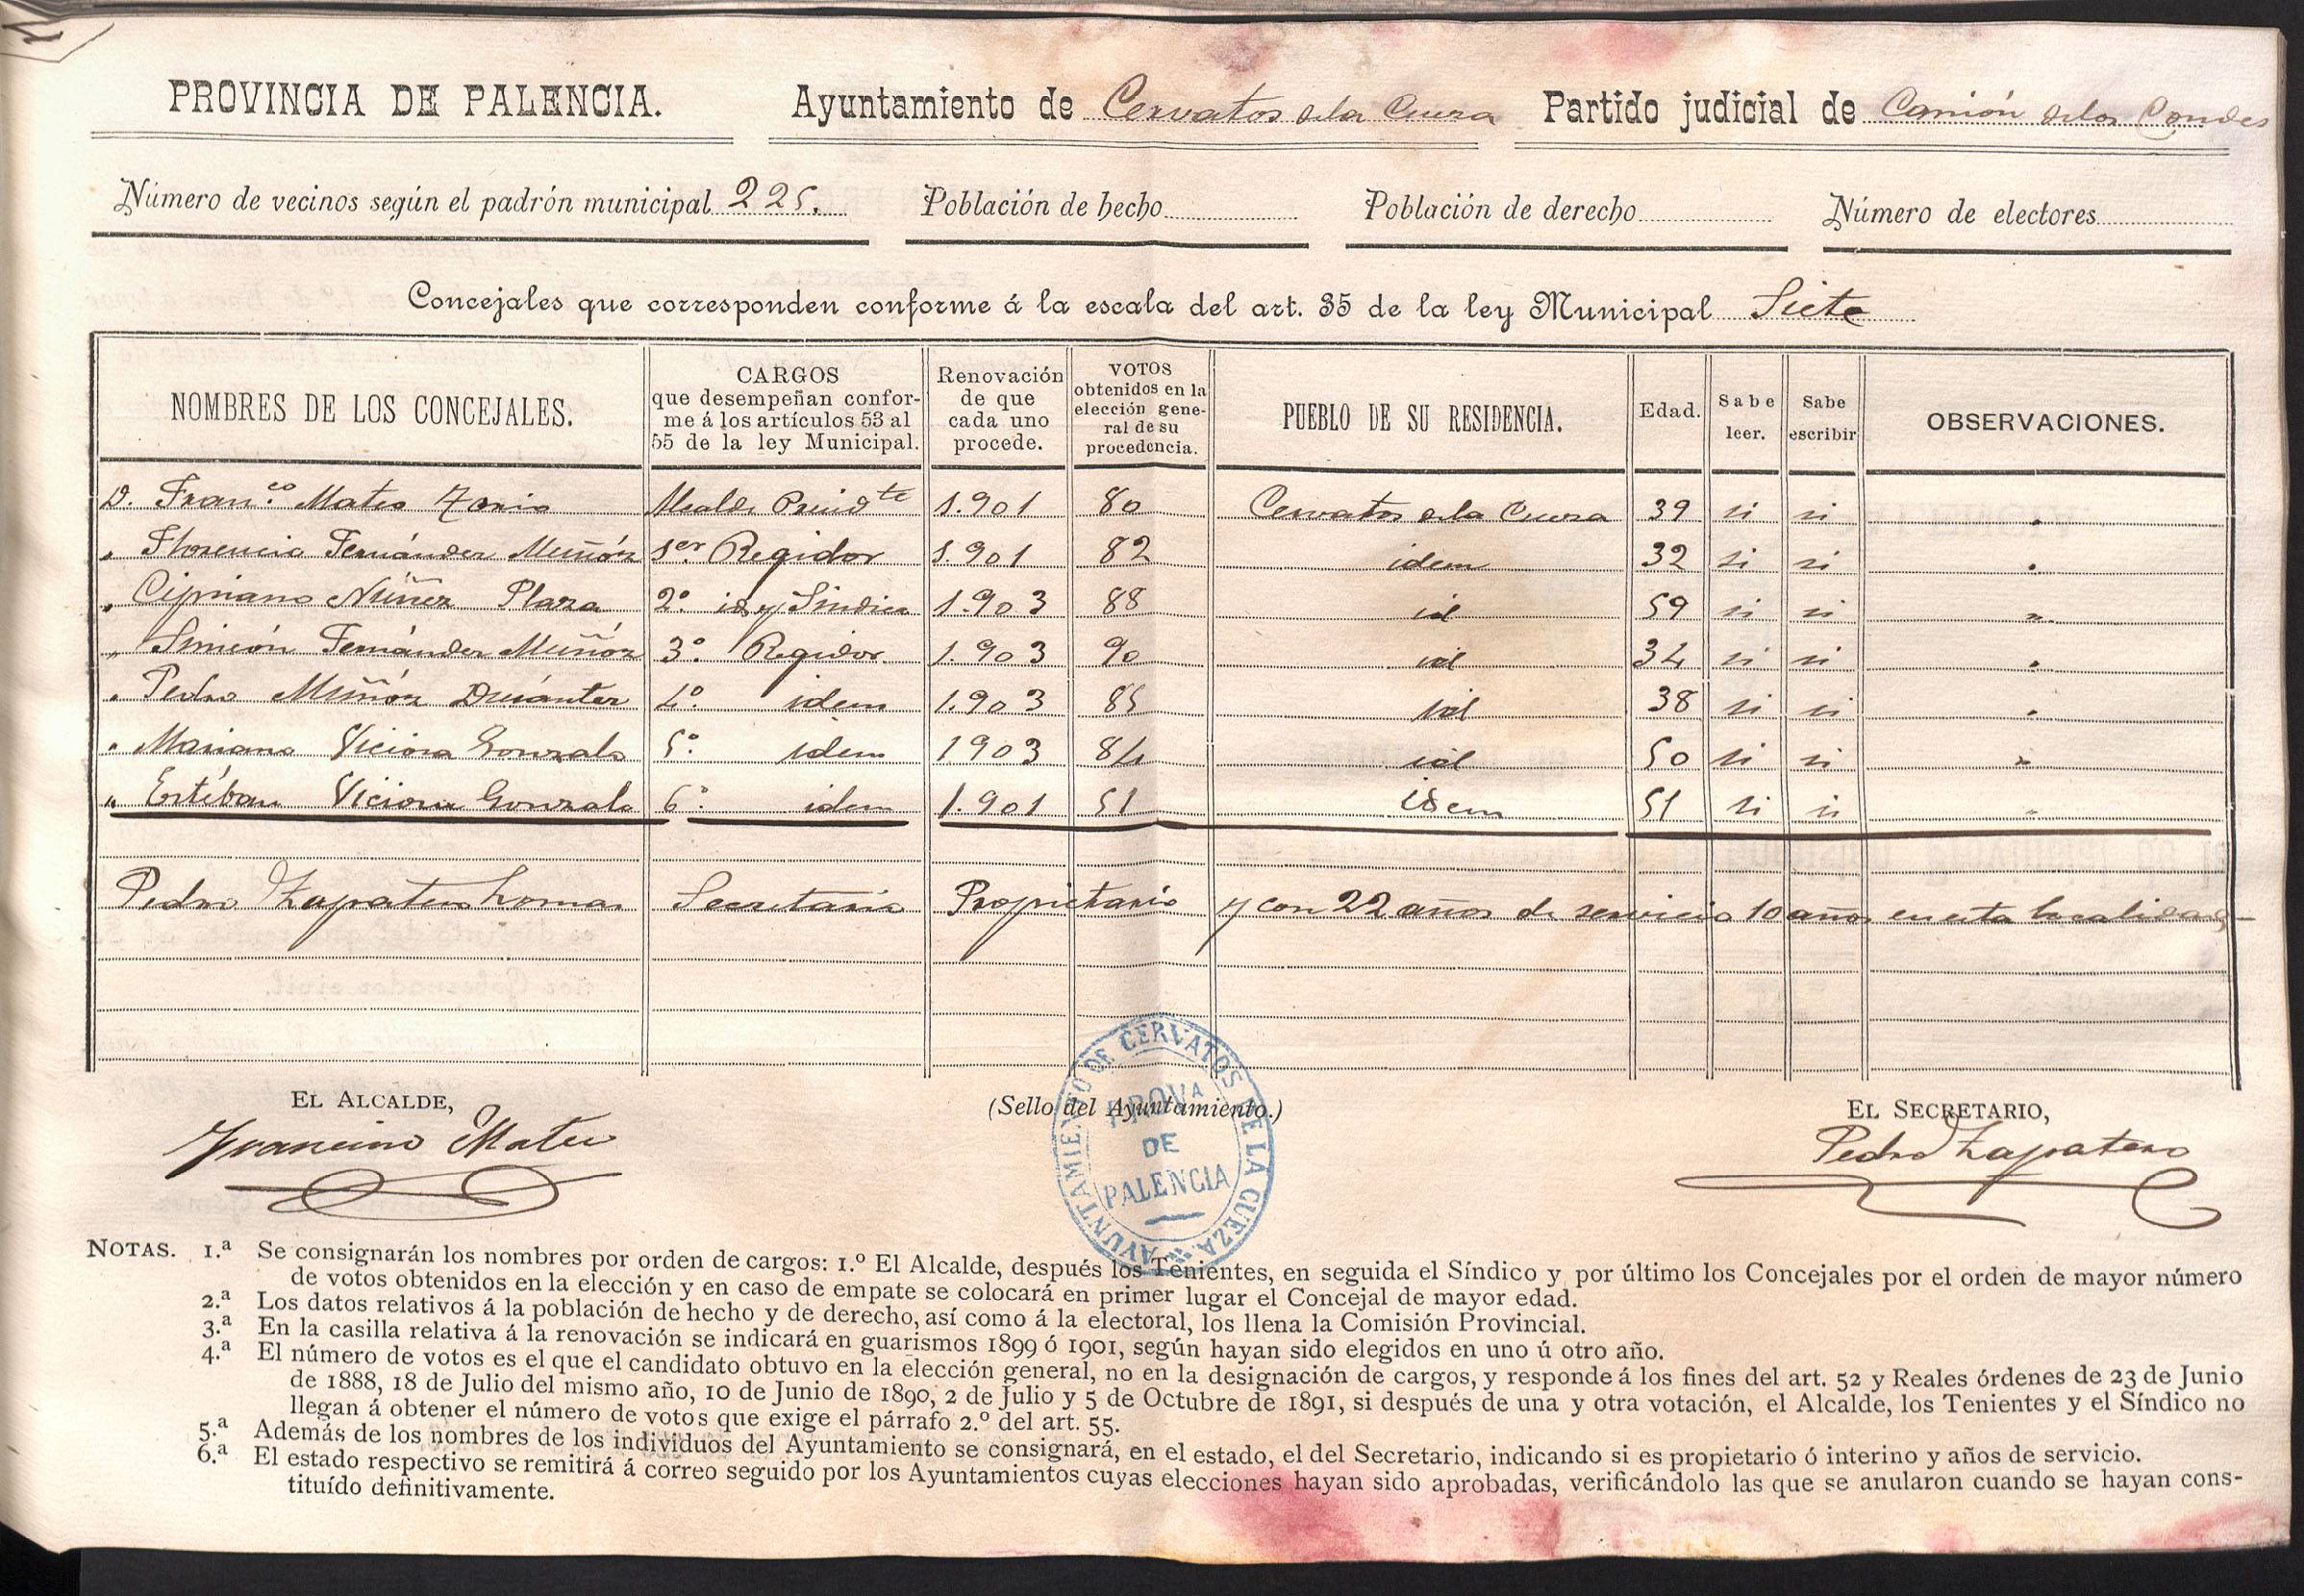 PROVINCIA DE PALENCIA. Ayuntamiento de Cervatos dela Cueza Partido judicial de Carrión delos Condes
Número de vecinos según el padrón municipal 225. Población de hecho Población de derecho Número de electores
Concejales que corresponden conforme á la escala del art. 35 de la ley Municipal Siete
NOMBRES DE LOS CONCEJALES. CARGOS que desempeñan conforme á los artículos 53 al 55 de la ley Municipal. Renovación de que cada uno procede. VOTOS obtenidos en la elección general de su procedencia. PUEBLO DE SU RESIDENCIA. Edad. Sabe leer. Sabe escribir OBSERVACIONES.
D. Fran.co Mateo Alcalde Presidte 1.901 80 Cervatos dela Cueza 39 si si "
" Florencio Fernández Muñóz 1er Regidor 1.901 82 idem 32 si si "
" Cipriano Núñez Plaza 2º id y Síndico 1.903 88 id 59 si si "
" Simeón Fernández Muñóz 3º Regidor. 1.903 90 id 34 si si "
" Pedro Muñóz 4º idem 1.903 85 id 38 si si "
" Mariano Viciosa Gonzalo 5º idem 1903 84 id 50 si si "
" Estéban Viciosa Gonzalo 6º idem 1.901 51 idem 51 si si "
Pedro Zapatero Lomas Secretario Propietario y con 22 años de servicio 10 años en esta localidad
EL ALCALDE, (Sello del Ayuntamiento.) EL SECRETARIO,
Francisco Mateo Pedro Zapatero
AYUNTAMIENTO DE CERVATOS DE LA CUEZA.
PROVA
DE
PALENCIA
NOTAS. 1.ª Se consignarán los nombres por orden de cargos: 1.º El Alcalde, después los Tenientes, en seguida el Síndico y por último los Concejales por el orden de mayor número
de votos obtenidos en la elección y en caso de empate se colocará en primer lugar el Concejal de mayor edad.
2.ª Los datos relativos á la población de hecho y de derecho, así como á la electoral, los llena la Comisión Provincial.
3.ª En la casilla relativa á la renovación se indicará en guarismos 1899 ó 1901, según hayan sido elegidos en uno ú otro año.
4.ª El número de votos es el que el candidato obtuvo en la elección general, no en la designación de cargos, y responde á los fines del art. 52 y Reales órdenes de 23 de Junio
de 1888, 18 de Julio del mismo año, 10 de Junio de 1890, 2 de Julio y 5 de Octubre de 1891, si después de una y otra votación, el Alcalde, los Tenientes y el Síndico no
llegan á obtener el número de votos que exige el párrafo 2.º del art. 55.
5.ª Además de los nombres de los individuos del Ayuntamiento se consignará, en el estado, el del Secretario, indicando si es propietario ó interino y años de servicio.
6.ª El estado respectivo se remitirá á correo seguido por los Ayuntamientos cuyas elecciones hayan sido aprobadas, verificándolo las que se anularon cuando se hayan cons-
tituído definitivamente.